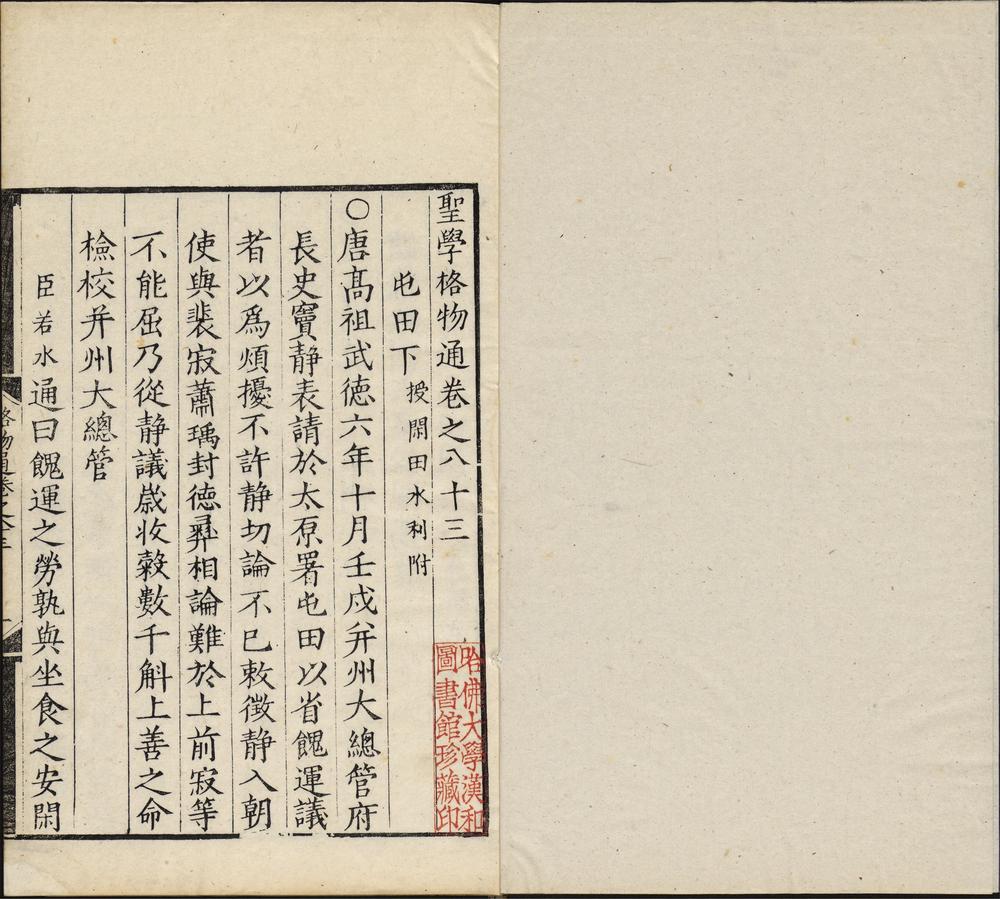 聖學格物通卷之八十三
屯田下授閑田水利附
○唐髙祖武徳六年十月壬戍并州大總管府
長史竇静表請於太原署屯田以省餽運議
者以爲煩擾不許静切論不已敕徴静入朝
使與裴寂蕭瑀封徳彛相論難於上前寂等
不能屈乃從静議嵗收糓數千斛上善之命
檢校并州大總管
臣若水通曰餽運之勞孰與坐食之安閑
格物通卷之八十三
哈佛大學漢和
圖書館珍藏印